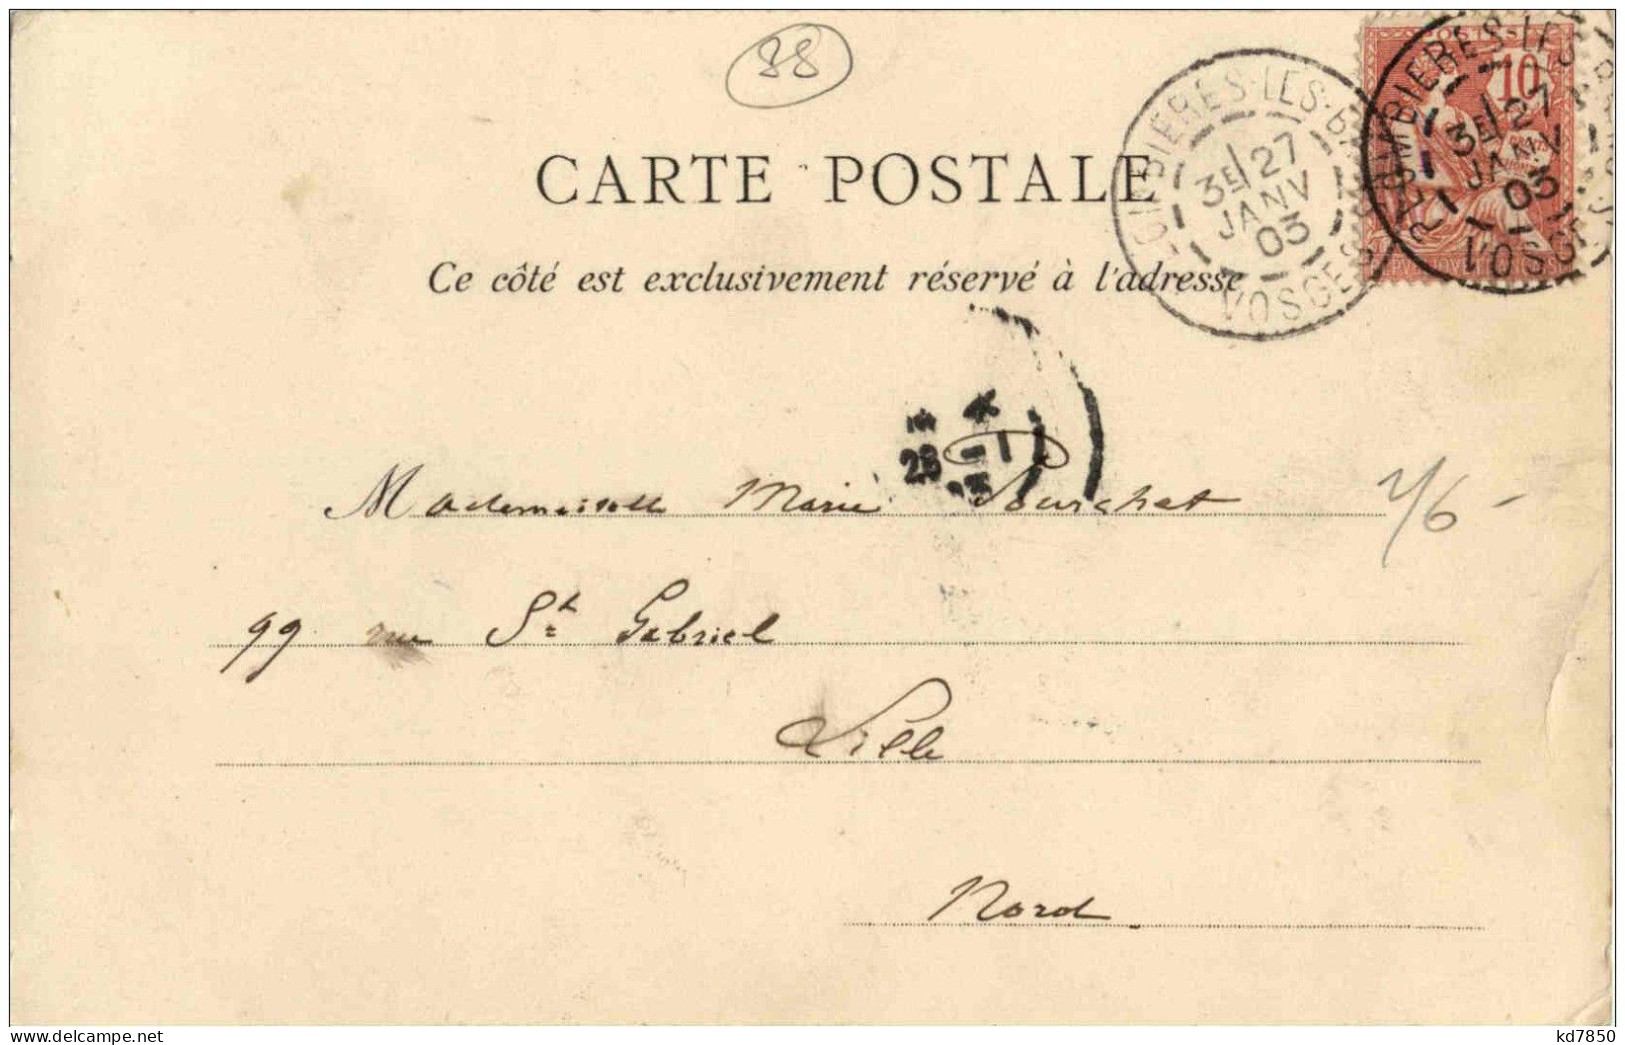 88
CARTE POSTALE
Ce côté est exclusivement réservé à l'adresse
PLOMBIERES-LES-B
3E 27
JANV
03
VOSGES
POSTES
10
PLOMBIERES-LES-BAINS
3E 27
JANV
03
VOSGES
28
Mademoiselle Marie Pourchet
Y/6-
99 rue St Gabriel
Lille
Nord
delcampe.net
kd7850